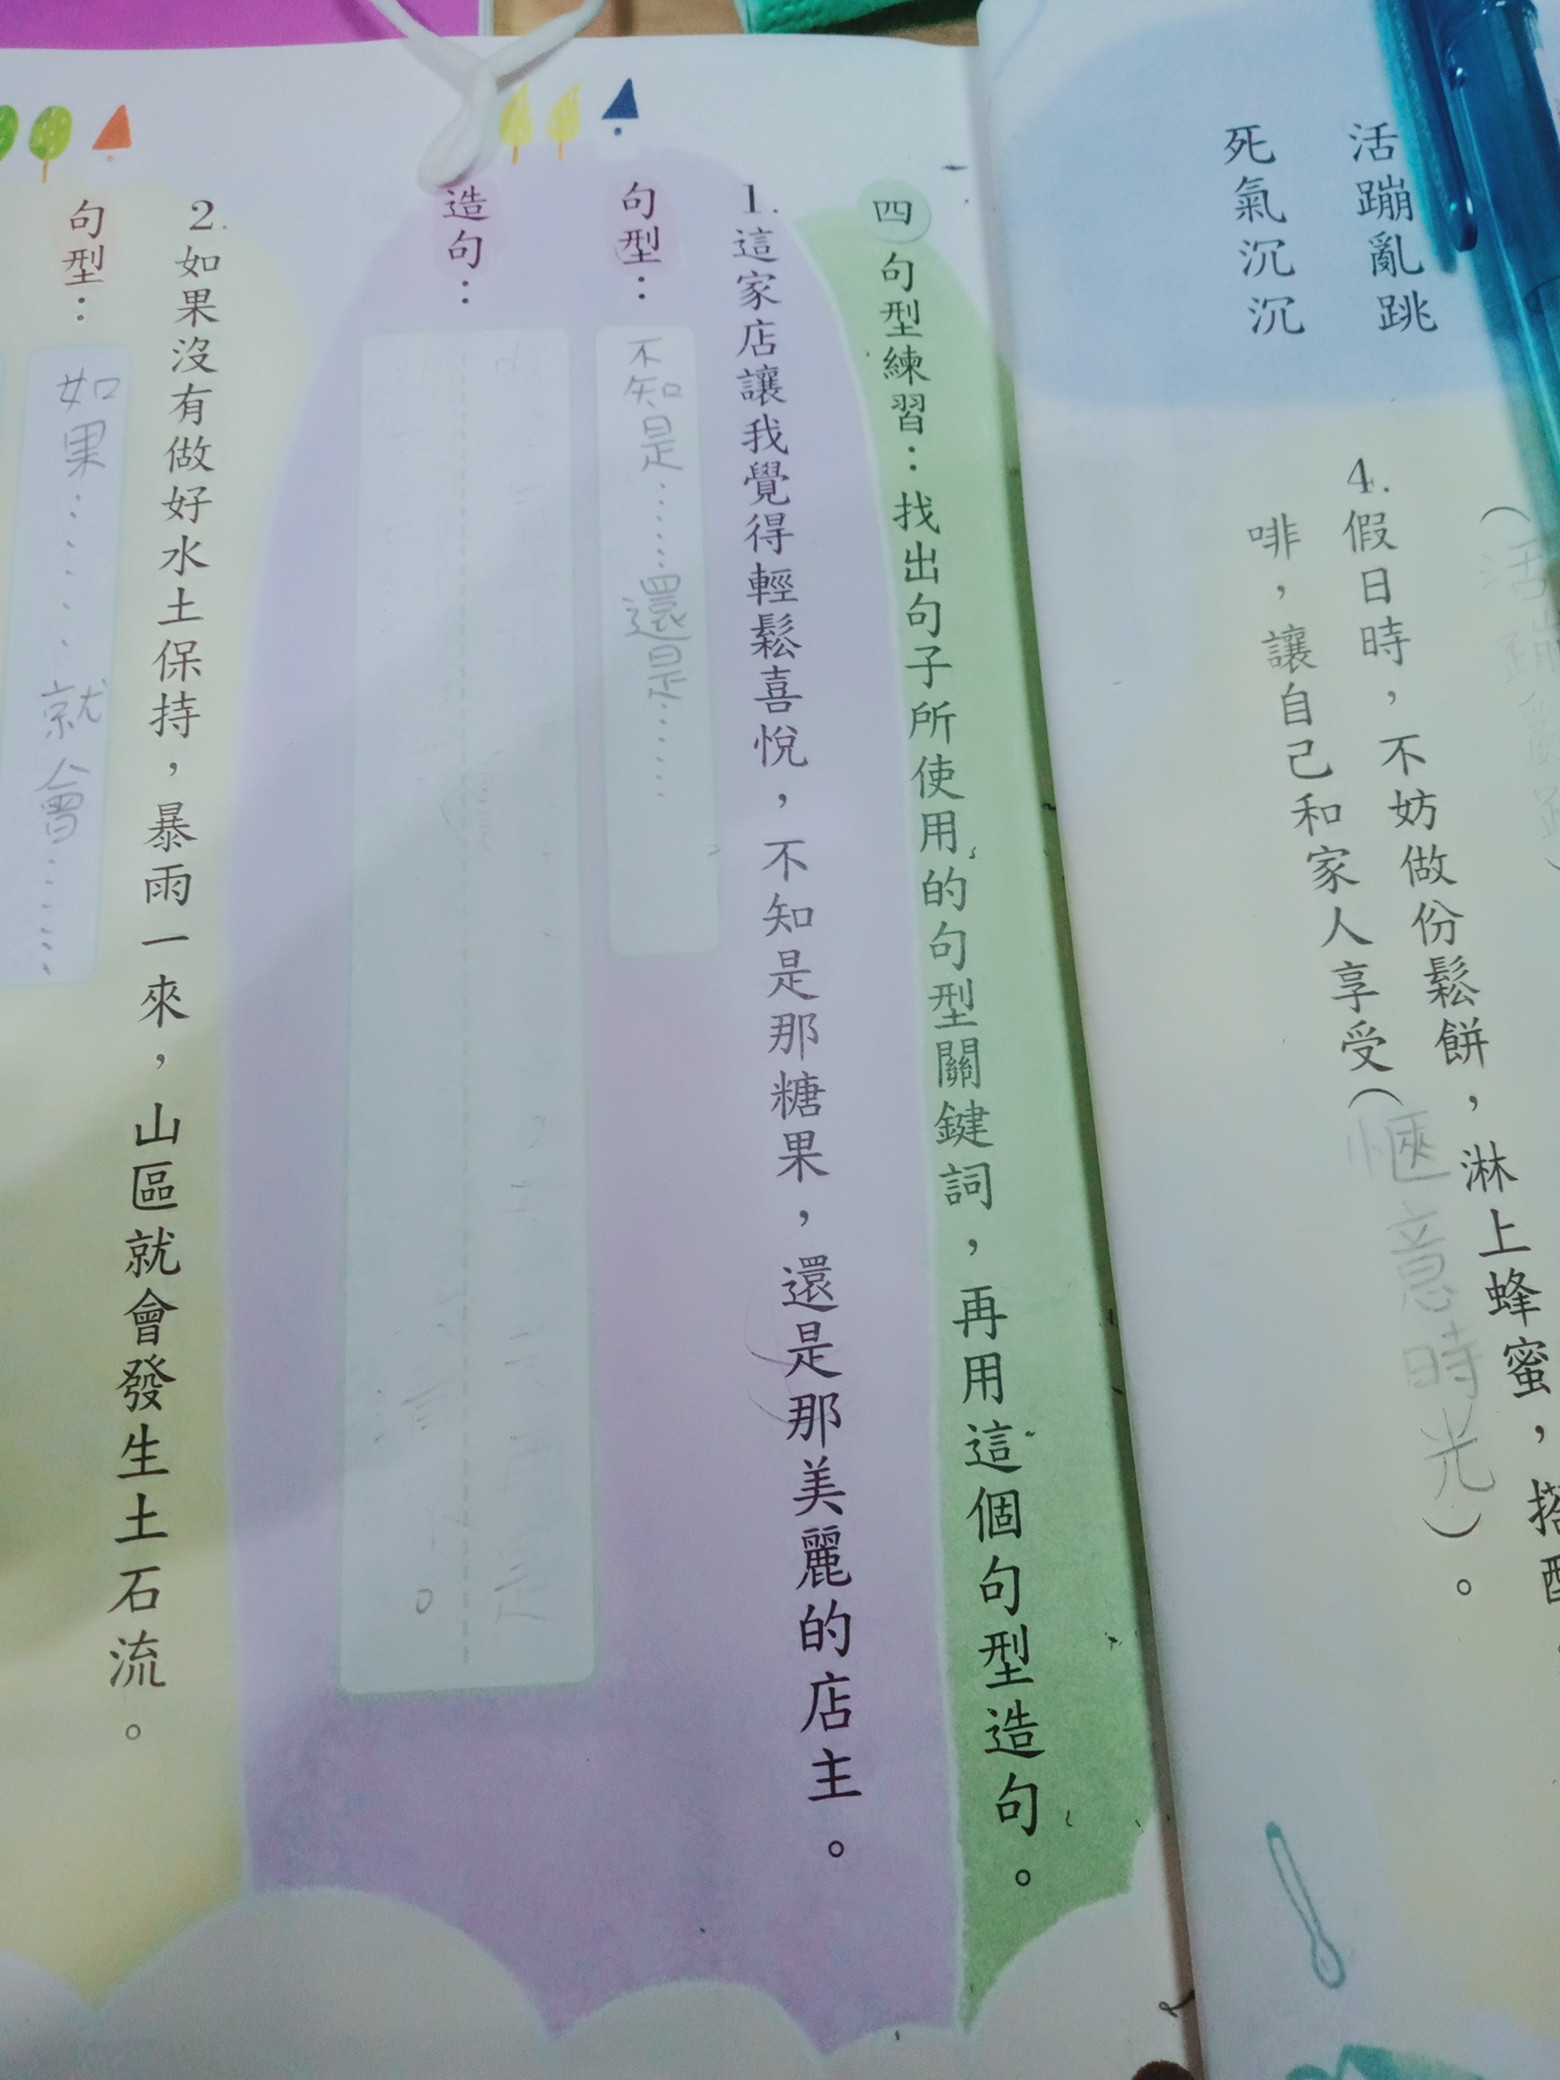 活蹦亂跳
死氣沉沉
4. 假日時，不妨做份鬆餅，淋上蜂蜜，搭
啡，讓自己和家人享受（愜意時光）。
四 句型練習：找出句子所使用的句型關鍵詞，再用這個句型造句。
1. 這家店讓我覺得輕鬆喜悅，不知是那糖果，還是那美麗的店主。
句型：不知是……還是……
造句：
2. 如果沒有做好水土保持，暴雨一來，山區就會發生土石流。
句型：如果……就會……